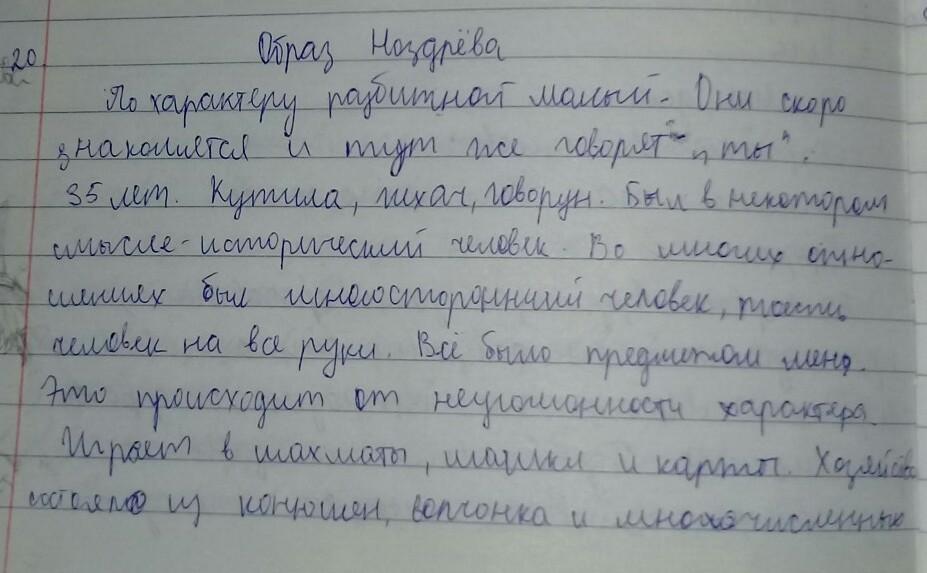 20
Образ Ноздрёва
По характеру разбитной малый. Они скоро
знакомятся и тут же говорят "ты".
35 лет. Кутила, лихач, говорун. Был в некотором
смысле - исторический человек. Во многих отно-
шениях был многосторонний человек, то есть
человек на все руки. Всё было предметом мены.
Это происходит от неугомонности характера.
Играет в шахматы, шашки и карты. Хозяйство
состояло из конюшен, волчонка и многочисленных